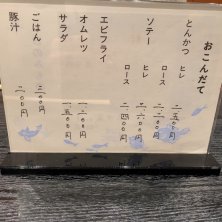 おこんだて
とんかつ
ヒレ 二五〇〇円
ロース 二二〇〇円
ソテー
ヒレ 二、六〇〇円
ロース 二四〇〇円
エビフライ
オムレツ 一八〇〇円
サラダ 一五〇〇円
ごはん 二〇〇円
豚汁 二〇〇円